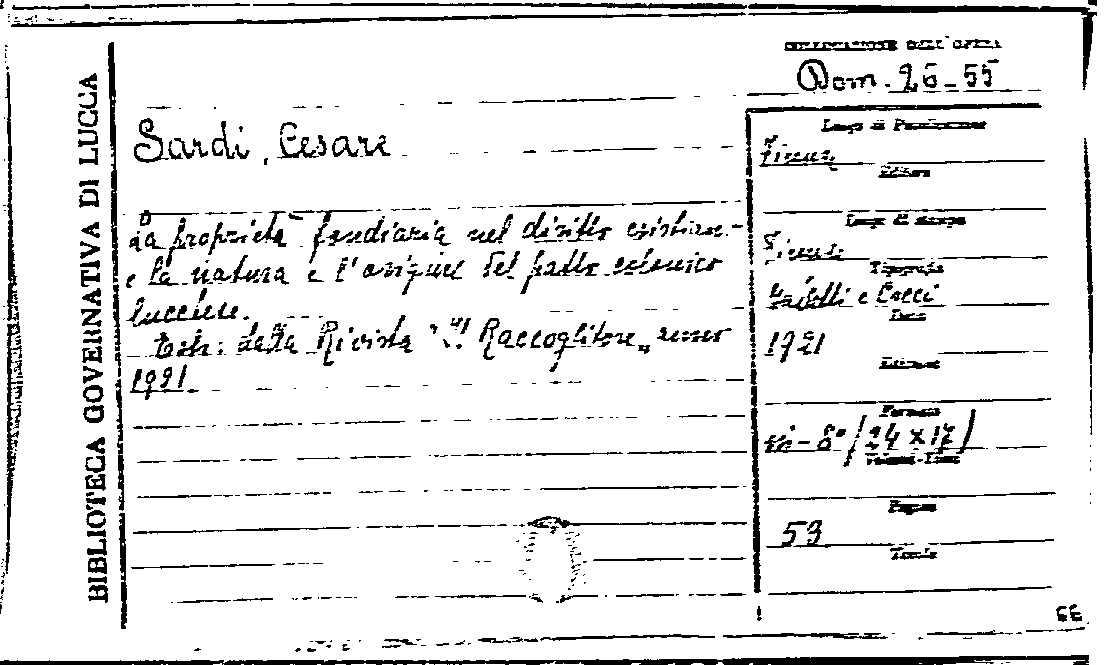 BIBLIOTECA GOVERNATIVA DI LUCCA
COLLOCAZIONE DELL'OPERA
Dom. 26-55
Sardi, Cesare
La proprietà fondiaria nel diritto cristian-
e la natura e l'origine del patto colonico
lucchese.
Estr. dalla Rivista "Il Raccoglitore" anno
1921
Luogo di Pubblicazione
Firenze
Editore
Luogo di stampa
Firenze
Tipografia
e Cocci
Data
1921
Edizione
Formato
in-8° (24 x 17)
Pagine
53
Tavole